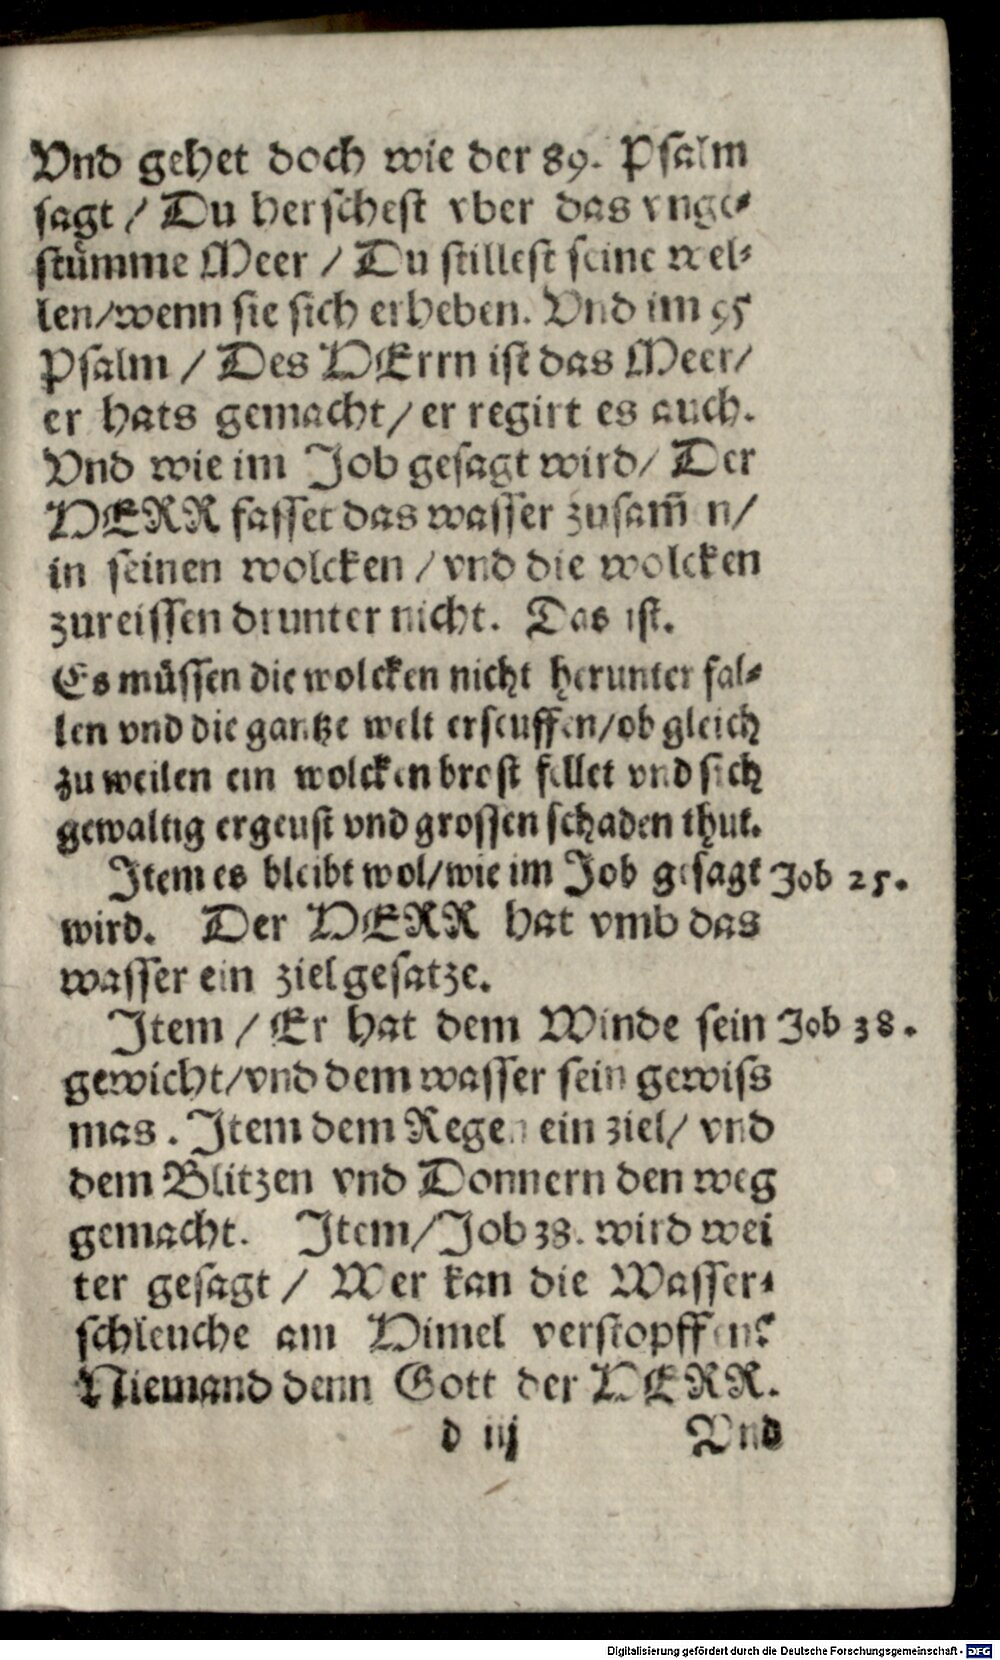 Vnd gehet doch wie der 89. Psalm
sagt / Du herschest vber das vnge-
stümme Meer / Du stillest seine wel-
len/wenn sie sich erheben. Vnd im 95
Psalm / Des HErrn ist das Meer/
er hats gemacht/ er regirt es auch.
Vnd wie im Job gesagt wird/ Der
HERR fasset das wasser zusam̄en/
in seinen wolcken / vnd die wolcken
zureissen drunter nicht. Das ist.
Es müssen die wolcken nicht herunter fal-
len vnd die gantze welt erseuffen/ob gleich
zu weilen ein wolcken brost fellet vnd sich
gewaltig ergeust vnd grossen schaden thut.
Item es bleibt wol/wie im Job gesagt Job 25.
wird. Der HERR hat vmb das
wasser ein ziel gesatze.
Item / Er hat dem Winde sein Job 38.
gewicht/vnd dem wasser sein gewiss
mas. Item dem Regen ein ziel/ vnd
dem Blitzen vnd Donnern den weg
gemacht. Item/Job 38. wird wei
ter gesagt / Wer kan die Wasser-
schleuche am Himel verstopffen?
Niemand denn Gott der HERR.
d iij Vnd
Digitalisierung gefördert durch die Deutsche Forschungsgemeinschaft - DFG